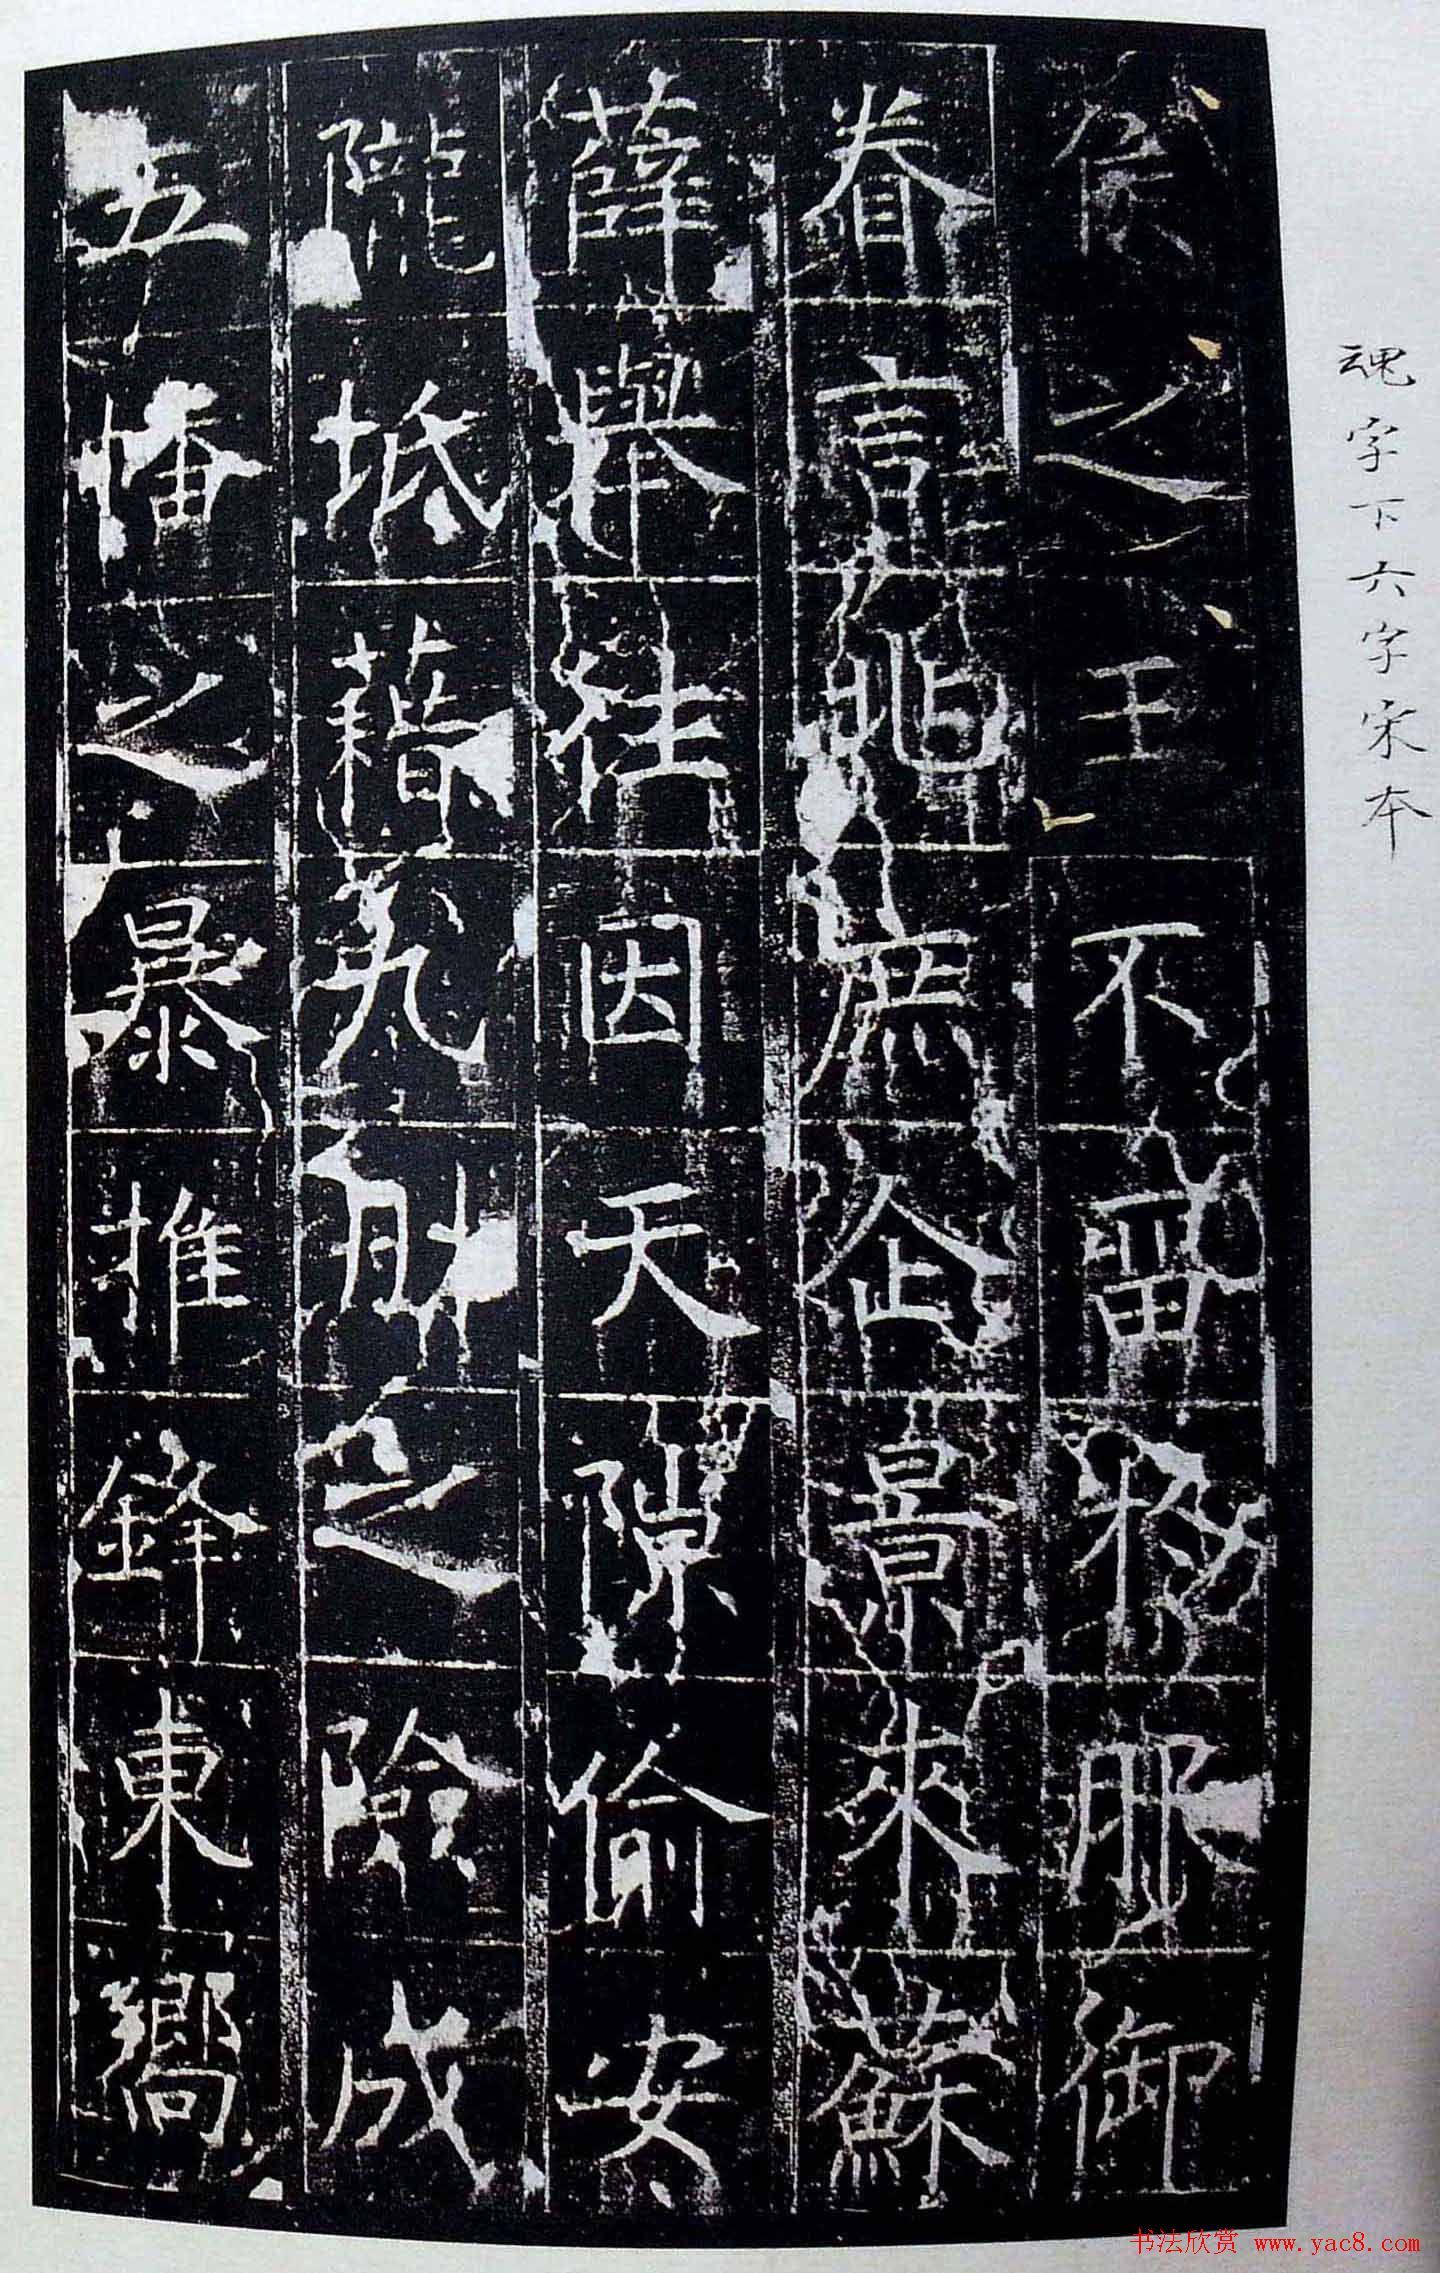 魂字下六字宋本
侯之王不畱扵服御
眷言兆庶企景來蘇
薛舉往因天隙偷安
隴坻藉九之險成
五幡之暴推鋒東嚮
书法欣赏 www.yac8.com